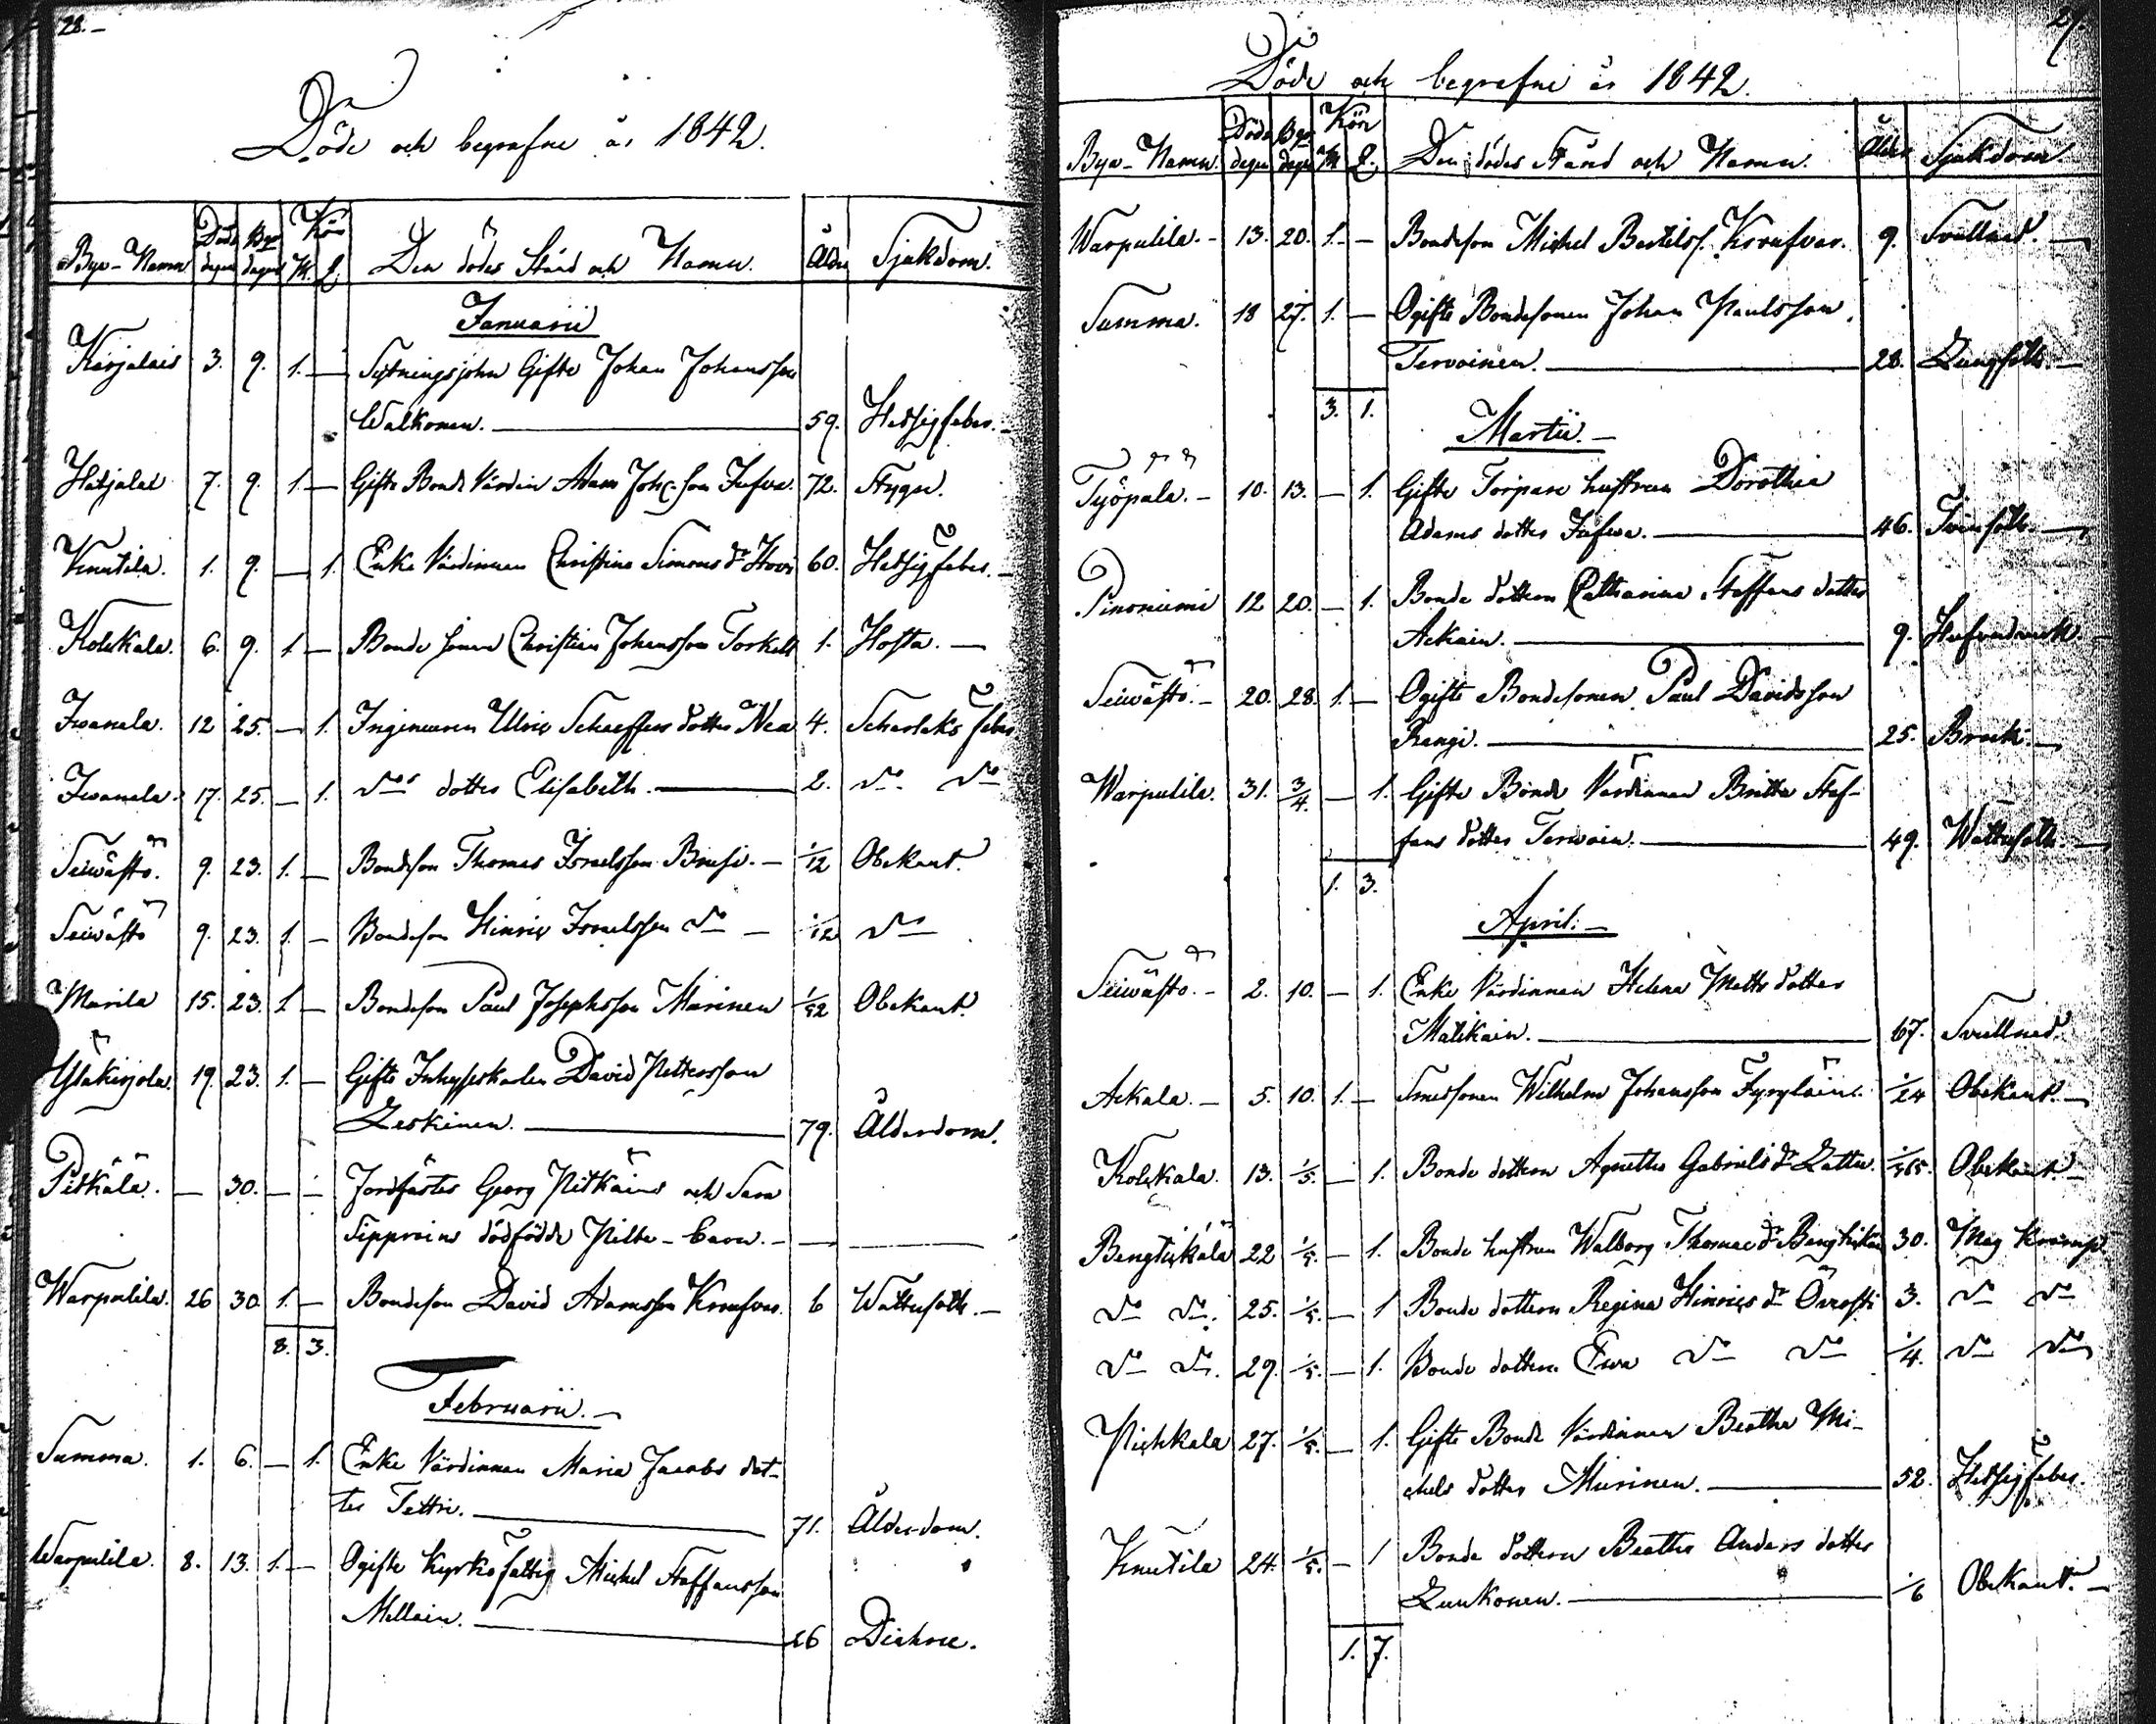 28.
Döde och begrafne år 1842.
Bye-Namn Döds dagen Begr dagen Kön M. Q. Den dödes Stånd och Namn. Ålder Sjukdom.
Januarii
Karjalais 3. 9. 1. — Sytningsjohn Gifte Johan Johansson
Walkonen. — 59. Hetsig feber. —
Hatjalax 7. 9. 1. — Gifte Bonde Värden Adam Joh: son Jufva. 72. Stygn.
Knutila. 1. 9. — 1. Enke Värdinnan Christina Simons dr Hovi 60. Hetsig feber. —
Kolckala. 6. 9. 1. — Bonde sonen Christian Johansson Torkell 1. Hosta. —
Iwanala. 12 25. — 1. Ingenieuren Ulric Schaeffers dotter Nea 4. Scharlaks feber
Iwanala. 17. 25. — 1. Dos dotter Elisabeth. — 2. Do Do
Seiwästö. 9. 23. 1. — Bondeson Thomas Israelsson Brusi. — 1/12 Obekant.
Seiwästö 9. 23. 1. — Bondeson Hinric Israelsson Do — 1/12 Do
Marila 15. 23. 1. — Bondeson Paul Josephsson Marinen 1/52 Obekant.
Yläkirjola. 19. 23. 1. — Gifte Inhyseskarlen David Pettersson
Leskinen. — 79. Ålderdom.
Pitkälä. — 30. — — Jordfästes Georg Pitkäins och Sara
Sipproins dödfödde Pilte-barn. —
Warpulila. 26 30. 1. — Bondeson David Adamsson Kroufvar. 6 Wattusoth. —
8. 3.
Februarii. —
Summa. 1. 6. — 1. Enke Värdinnan Maria Jacobs dot-
ter Tettri. — 71. Ålderdom.
Warpulila. 8. 13. 1. — Ogifte Kyrkofattig Michel Staffansson
Mellain. — 26 Diahrie.
29.
Döde och begrafne år 1842.
Bye-Namn. Döds dagen Begr dagen Kön M Q. Den dödes Stånd och Namn. Ålder Sjukdom.
Warpulila. — 13. 20. 1. — Bondeson Michel Bertilss. Kroufvar. 9. Svullnad. —
Summa. 18 27. 1. — Ogifte Bondesonen Johan Paulsson
Tervoinen. — 28. Lungsoth. —
3. 1.
Martii. —
Työpälä. — 10. 13. — 1. Gifte Torpare hustrun Dorothea
Adams dotter Jufva. — 46. Tvinsoth. —
Pinoniemi 12 20. — 1. Bonde dottren Catharina Staffans dotter
Ackain. — 9. Hufvudverk. —
Seiwästö. — 20. 28. 1. — Ogifte Bondesonen Paul Davidsson
Rangi. — 25. Brock. —
Warpulila. 31. 3/4. — 1. Gifte Bonde Värdinnan Britta Staf-
fans dotter Terwoin. — 49. Wattusoth. —
1. 3.
April. —
Seiwästö. — 2. 10. — 1. Enke Värdinnan Helena Matts dotter
Matikain. — 67. Svullnad.
Ackala. — 5. 10. 1. — Smedsonen Wilhelm Johansson Fyryläin. 1/24 Obekant. —
Kolckala. 13. 1/5. — 1. Bonde dottren Agnetha Gabriels dr Lattu. 1/365. Obekant. —
Bengtickälä 22 1/5. — 1. Bonde hustrun Walborg Thomae dr Bengtickäin 30. Mag Kramp.
Do Do. 25. 1/5. — 1 Bonde dottren Regina Hinrics dr Öxrofti 3. Do Do
Do Do. 29. 1/5. — 1. Bonde dottren Ewa Do Do 1/4. Do Do
Pichkala 27. 1/5. — 1. Gifte Bonde Värdinnan Beatha Mi-
chels dotter Murinen. — 52. Hetsig feber.
Knutila 24. 1/5. — 1 Bonde dottren Beatha Anders dotter
Luukonen. — 1/6 Obekant. —
1. 7.